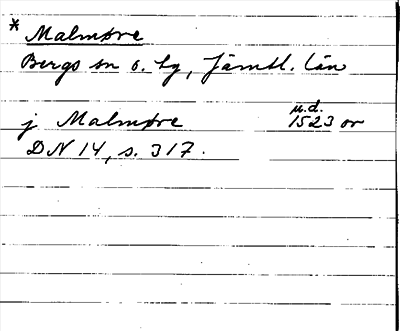 * Malmøre
Bergs sn o. hg, Jämtl. län
u.d.
j Malmøre 1523 or
DN 14, s. 317.